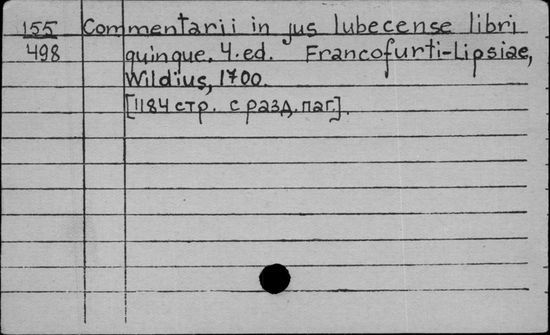 155 Commentarii in jus lubecense libri
498 quinque. 4. ed. Francofurti-Lipsiae,
Wildius, 1700.
[1184 стр. с разд. паг.].